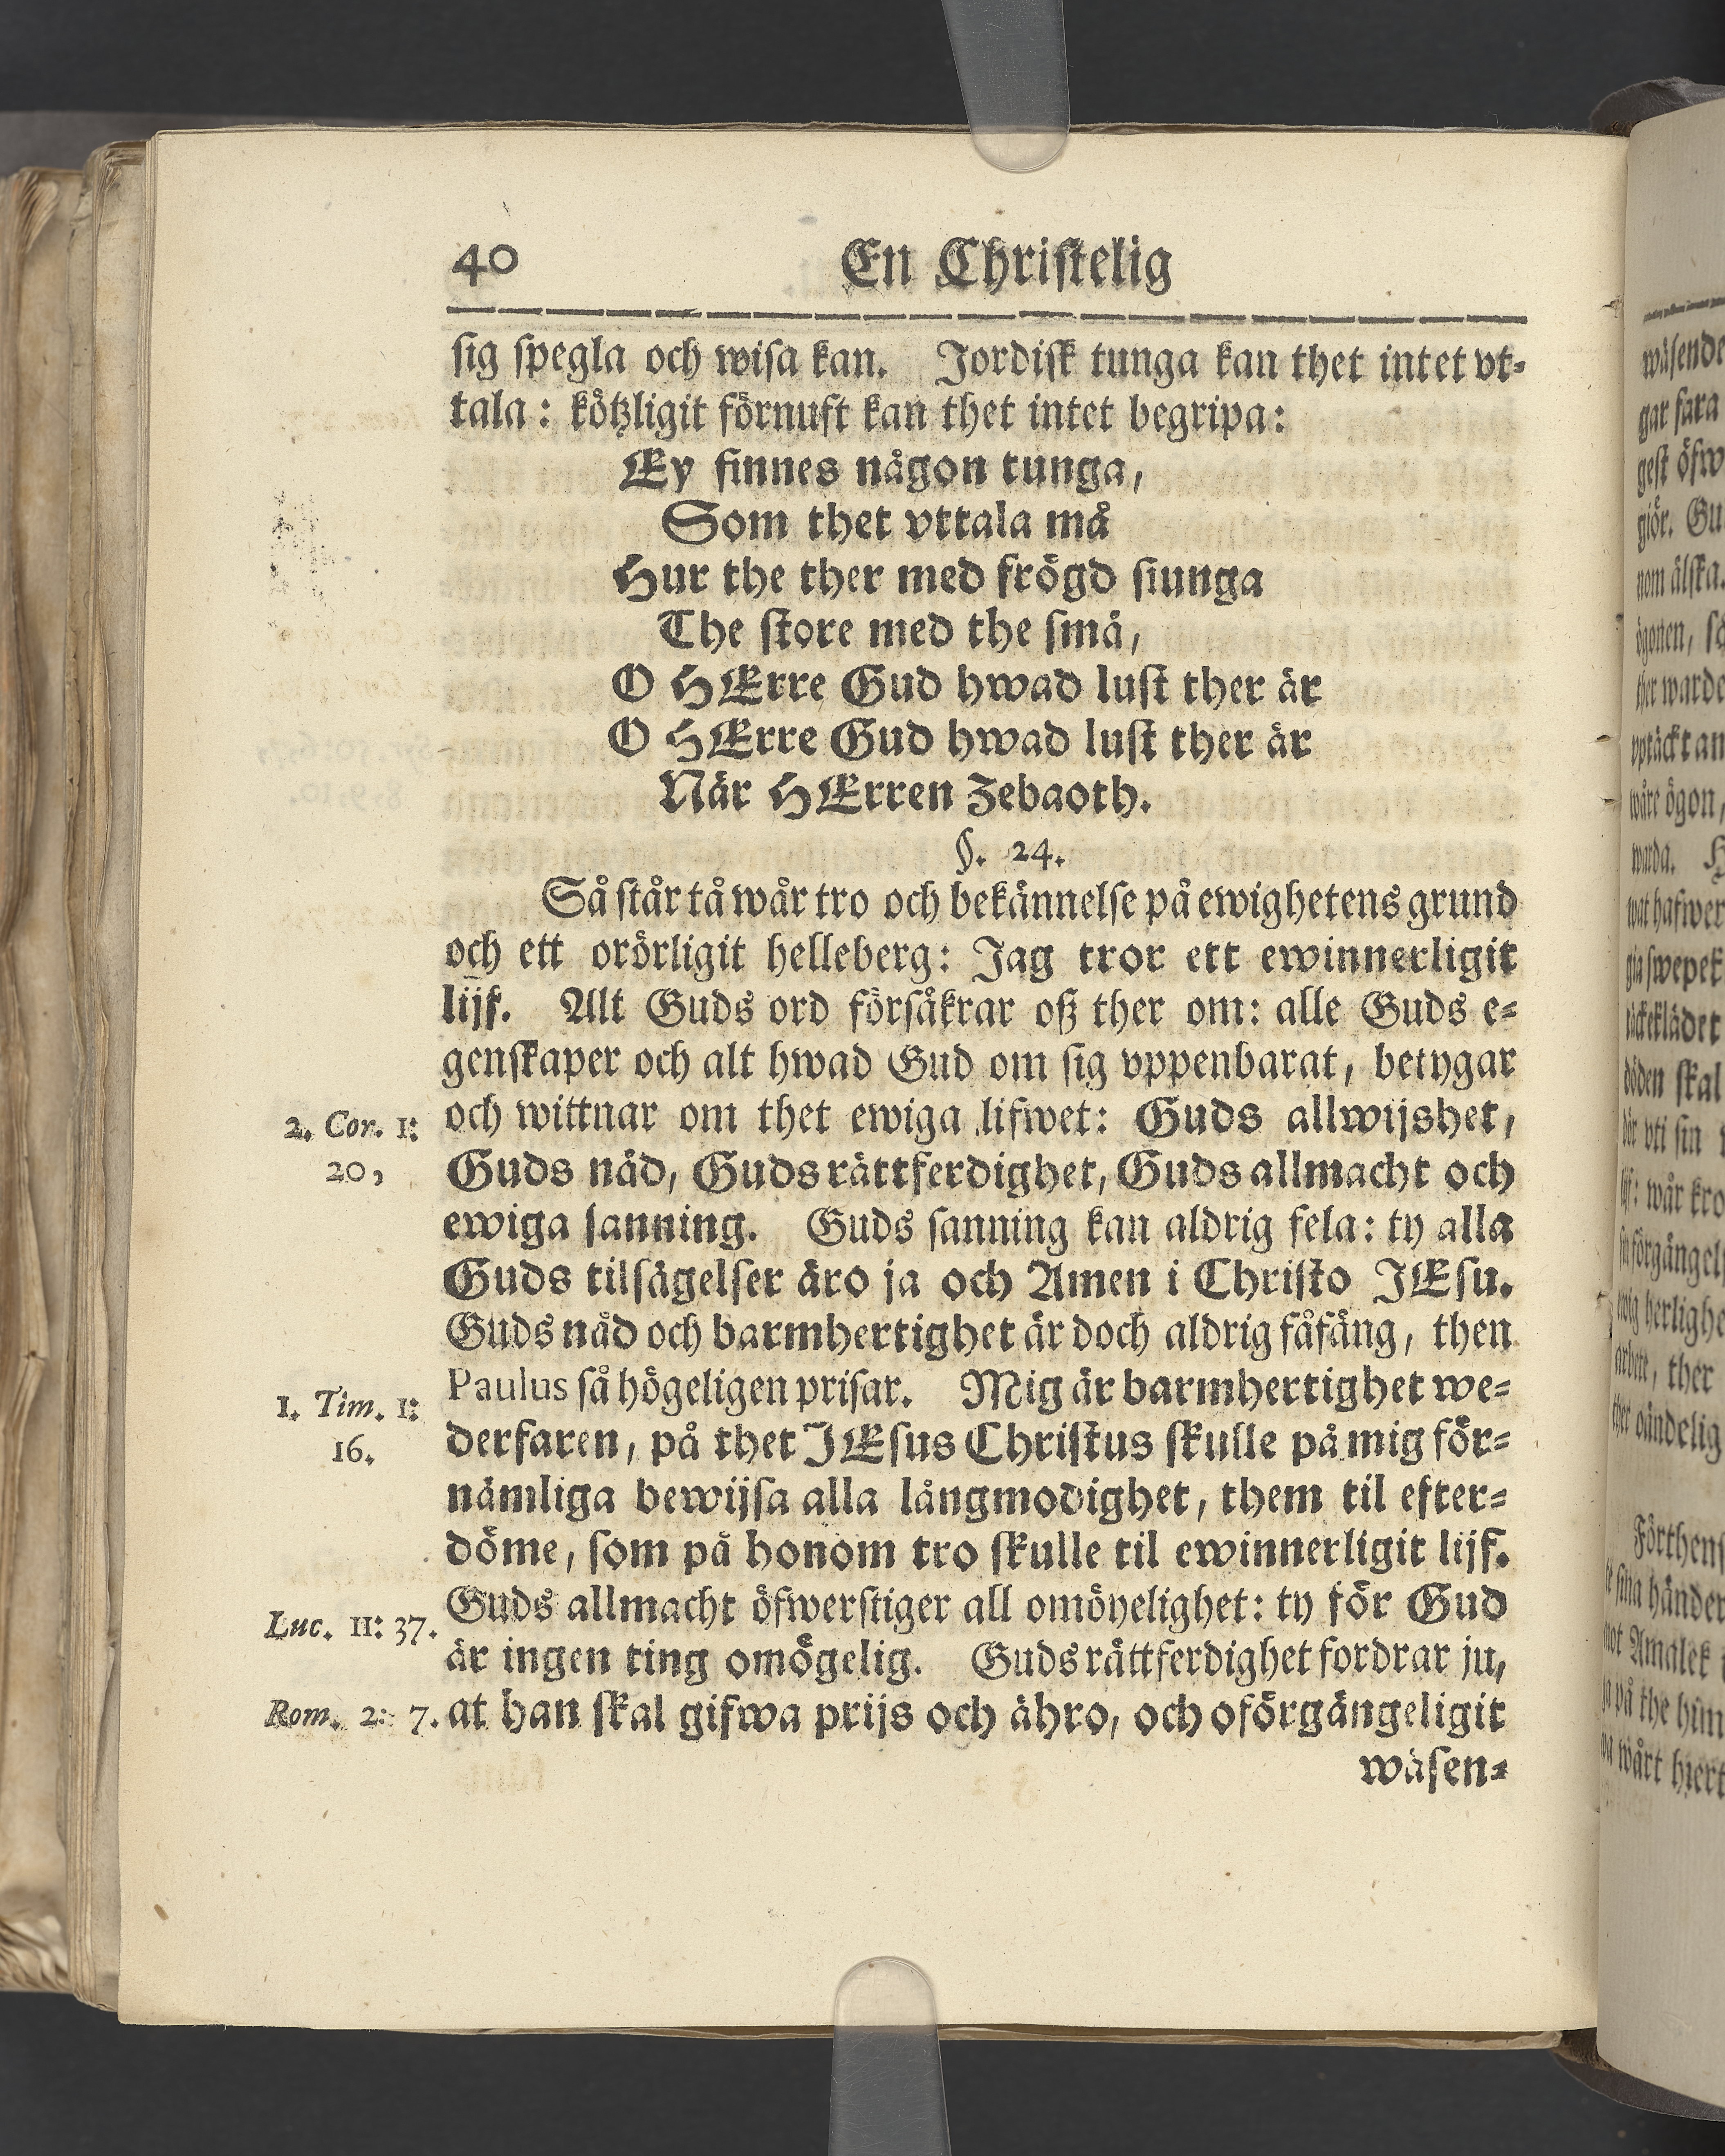 40 En Christelig
sig spegla och wisa kan. Jordisk tunga kan thet intet vt-
tala: kötzligit förnuft kan thet intet begripa:
Ey finnes någon tunga,
Som thet vttala må
Hur the ther med frögd siunga
The store med the små,
O HErre Gud hwad lust ther är
O HErre Gud hwad lust ther är
När HErren Zebaoth.
§. 24.
Så står tå wår tro och bekännelse på ewighetens grund
och ett orörligit helleberg: Jag tror ett ewinnerligit
lijf. Alt Guds ord försåkrar oß ther om: alle Guds e-
genskaper och alt hwad Gud om sig vppenbarat, betygar
2. Cor. 1: och wittnar om thet ewiga lifwet: Guds allwijshet,
20, Guds nåd, Guds rättferdighet, Guds allmacht och
ewiga sanning. Guds sanning kan aldrig fela: ty alla
Guds tilsägelser äro ja och Amen i Christo JEsu.
Guds nåd och barmhertighet är doch aldrig fåfäng, then
1. Tim. 1: Paulus så högeligen prisar. Mig är barmhertighet we-
16. derfaren, på thet JEsus Christus skulle på mig för-
nämliga bewijsa alla långmodighet, them til efter-
döme, som på honom tro skulle til ewinnerligit lijf.
Luc. 11: 37. Guds allmacht öfwerstiger all omöyelighet: ty för Gud
är ingen ting omögelig. Guds rättferdighet fordrar ju,
Rom. 2: 7. at han skal gifwa prijs och ähro, och oförgängeligit
wäsen-